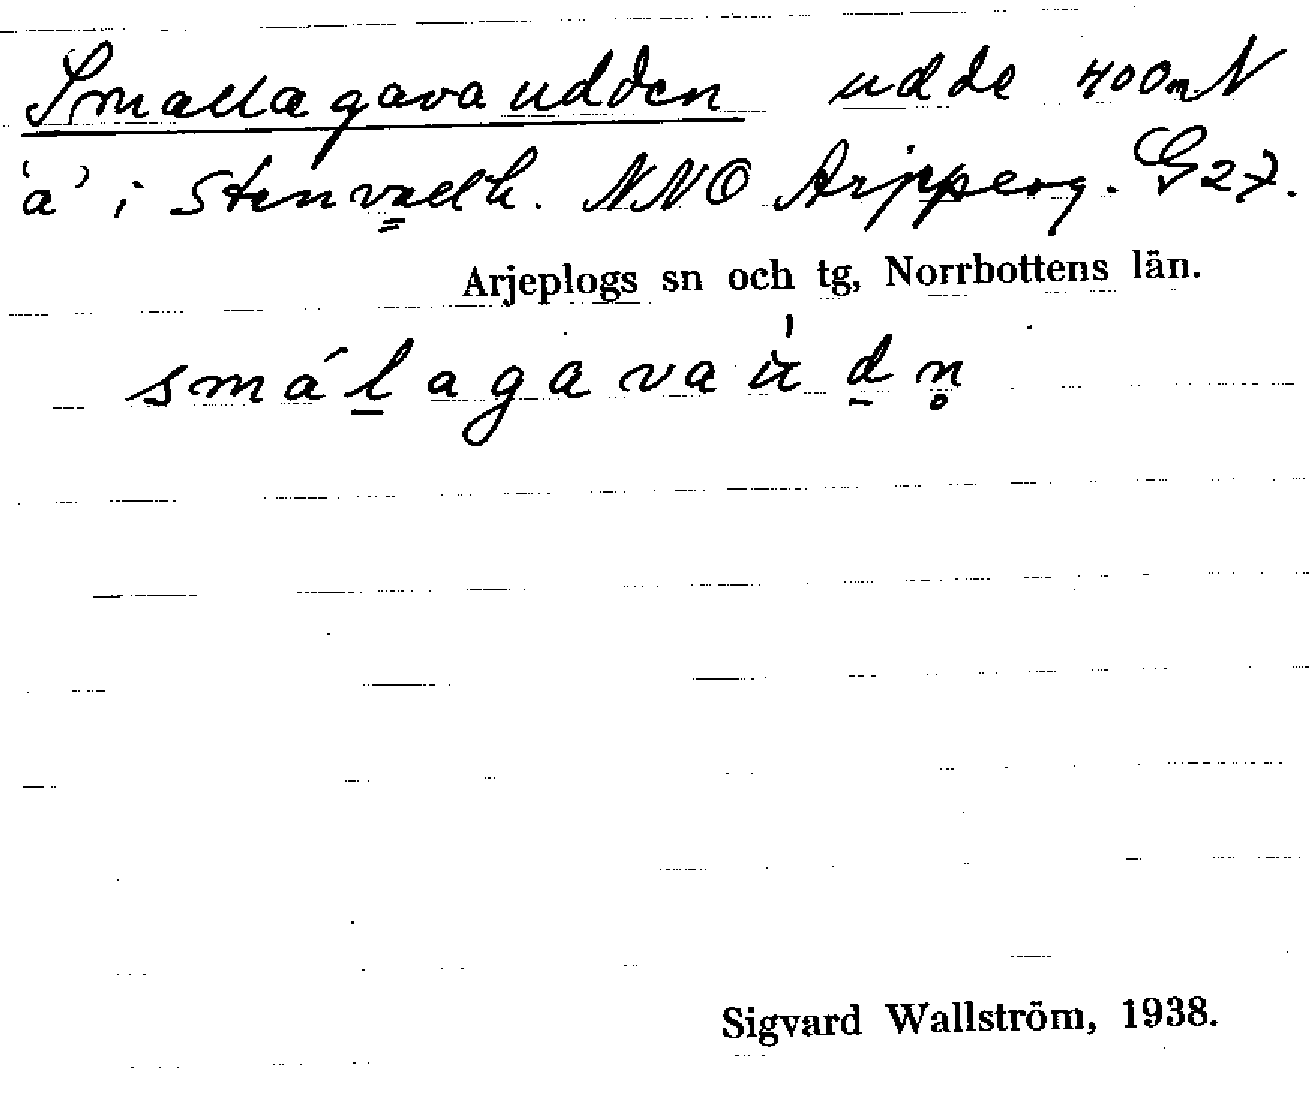 Smallagavaudden udde 400m N
'a' i Stenvallh. NNO Arjepperg. G27.
Arjeplogs sn och tg, Norrbottens län.
smálagavaùdn̥
Sigvard Wallström, 1938.